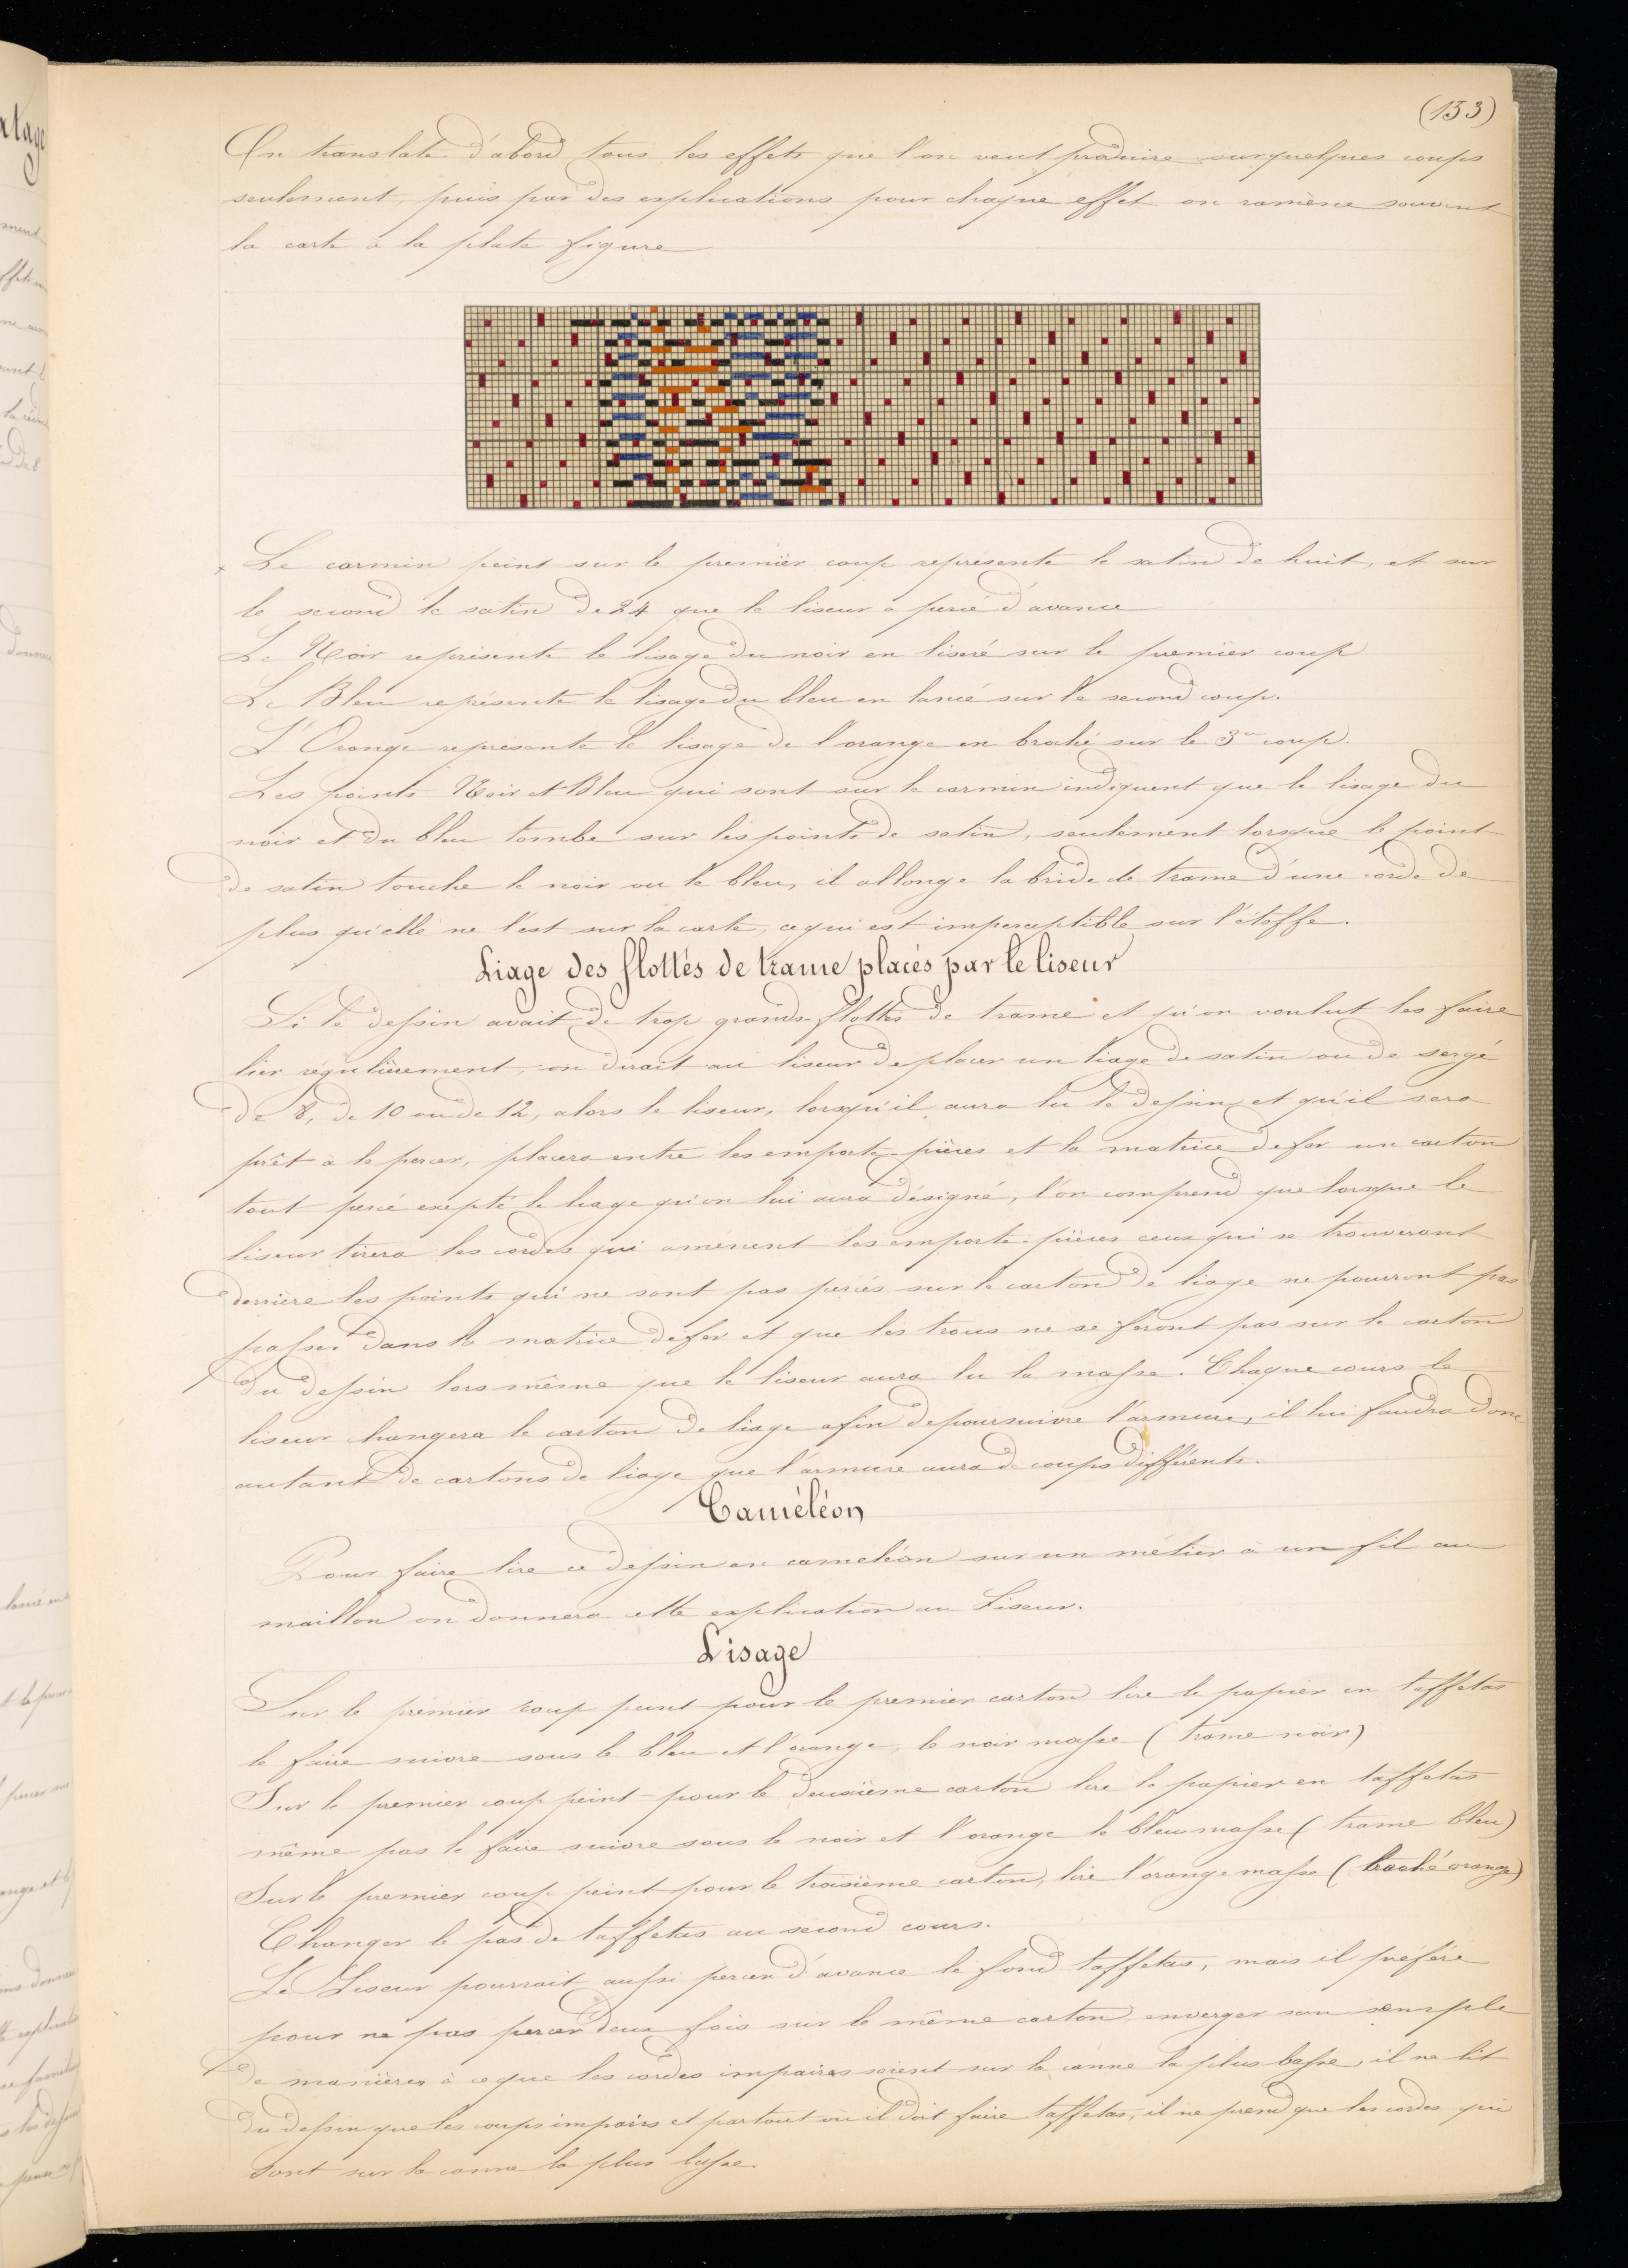 (153)
On translate d'abord tous les effets que l'on veut produire sur quelques coups
seulement, puis par des explications pour chaque effet on ramène souvent
la carte à la plate figure
Le carmin peint sur le premier coup représente le satin de huit, et sur
le second le satin de 24 que le liseur a percé d'avance
Le Noir représente le lisage du noir en liseré sur le premier coup
Le Bleu représente le lisage du bleu en lancé sur le second coup.
L'Orange représente le lisage de l'orange en broché sur le 3me coup.
Les points Noir et Bleu qui sont sur le carmin indiquent que le lisage du
noir et du bleu tombe sur les points de satin, seulement lorsque le point
de satin touche le noir ou le bleu, il allonge la bride de trame d'une corde de
plus qu'elle ne l'est sur la carte, ce qui est imperceptible sur l'étoffe.
Liage des flottés de trame placés par le liseur
Si le dessin avait de trop grands flottés de trame et qu'on voulut les faire
lier régulièrement, on dirait au liseur de placer un liage de satin ou de sergé
de 8, de 10 ou de 12, alors le liseur, lorsqu'il aura lu le dessin et qu'il sera
prêt à le percer, placera entre les emporte-pièces et la matrice de fer un carton
tout percé exepté le liage qu'on lui aura désigné, l'on comprend que lorsque le
liseur tirera les cordes qui amènent les emporte-pièces ceux qui se trouveront
derrière les points qui ne sont pas percés sur le carton de liage ne pourront pas
passer dans la matrice de fer et que les trous ne se feront pas sur le carton
du dessin lors même que le liseur aura lu la masse. Chaque cours le
liseur changera le carton de liage afin de poursuivre l'armure, il lui faudra donc
autant de cartons de liage que l'armure aura de coups différents.
Caméléon
Pour faire lire ce dessin en caméléon sur un métier à un fil au
maillon on donnera cette explication au Liseur.
Lisage
Sur le premier coup peint pour le premier carton lire le papier en taffetas
le faire suivre sous le bleu et l'orange, le noir masse (trame noir)
Sur le premier coup peint pour le deuxième carton lire le papier en taffetas
même pas le faire suivre sous le noir et l'orange le bleu masse (trame bleu)
Sur le premier coup peint pour le troisième carton, lire l'orange masse (broché orange)
Changer le pas de taffetas au second cours.
Le Liseur pourrait aussi percer d'avance le fond taffetas, mais il préfère
pour ne pas percer deux fois sur le même carton, enverger son semple
de manières à ce que les cordes impaires soient sur la canne la plus basse, il ne lit
du dessin que les coups impairs et partout où il doit faire taffetas, il ne prend que les cordes qui
sont sur la canne la plus basse.